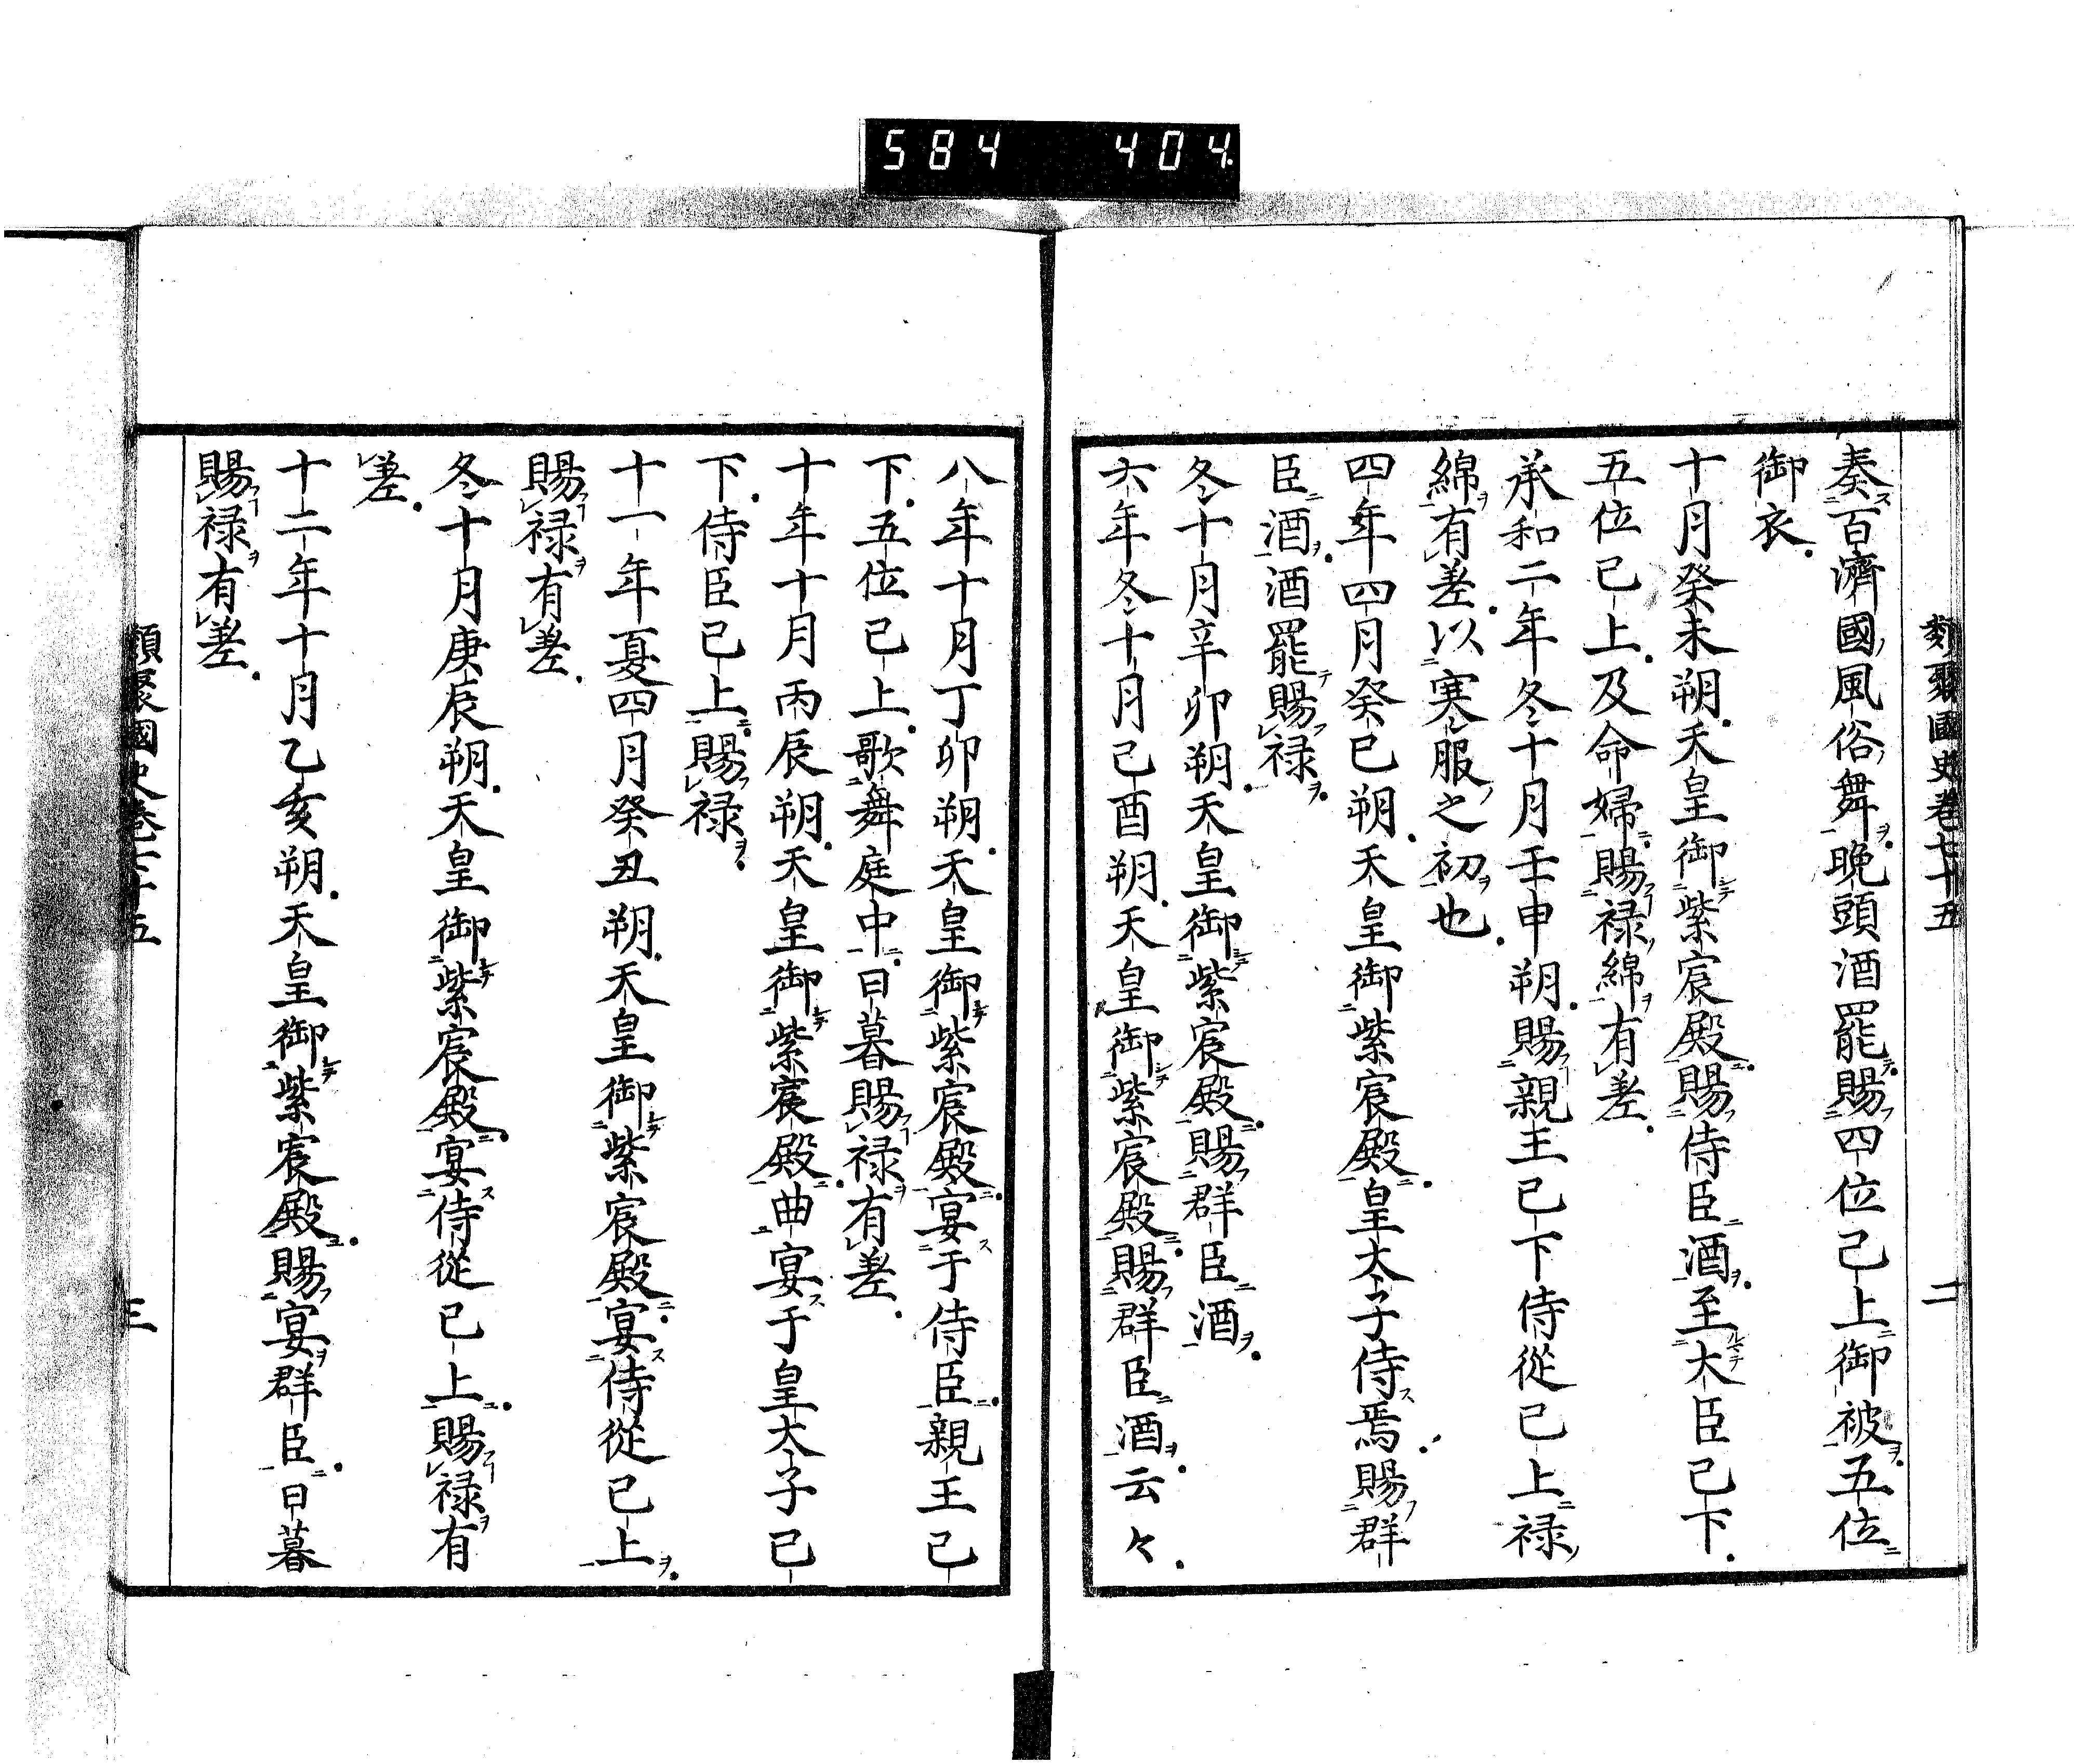 584 404
類聚國史卷七十五 二
奏百濟國風俗舞晩頭酒罷賜四位已上御被五位
御衣
十月癸未朔天皇御紫宸殿賜侍臣酒至大臣已下
五位已上及命婦賜禄綿有差
承和二年冬十月壬申朔賜親王已下侍從已上禄
綿有差以寒服之初也
四年四月癸巳朔天皇御紫宸殿皇太子侍焉賜群
臣酒酒罷賜禄
冬十月辛卯朔天皇御紫宸殿賜群臣酒
六年冬十月己酉朔天皇御紫宸殿賜群臣酒云々
八年十月丁卯朔天皇御紫宸殿宴于侍臣親王已
下五位已上歌舞庭中日暮賜禄有差
十年十月丙辰朔天皇御紫宸殿曲宴于皇太子已
下侍臣已上賜禄
十一年夏四月癸丑朔天皇御紫宸殿宴侍從已上
賜禄有差
冬十月庚辰朔天皇御紫宸殿宴侍從已上賜禄有
差
十二年十月乙亥朔天皇御紫宸殿賜宴群臣日暮
賜禄有差
類聚國史卷七十五 三